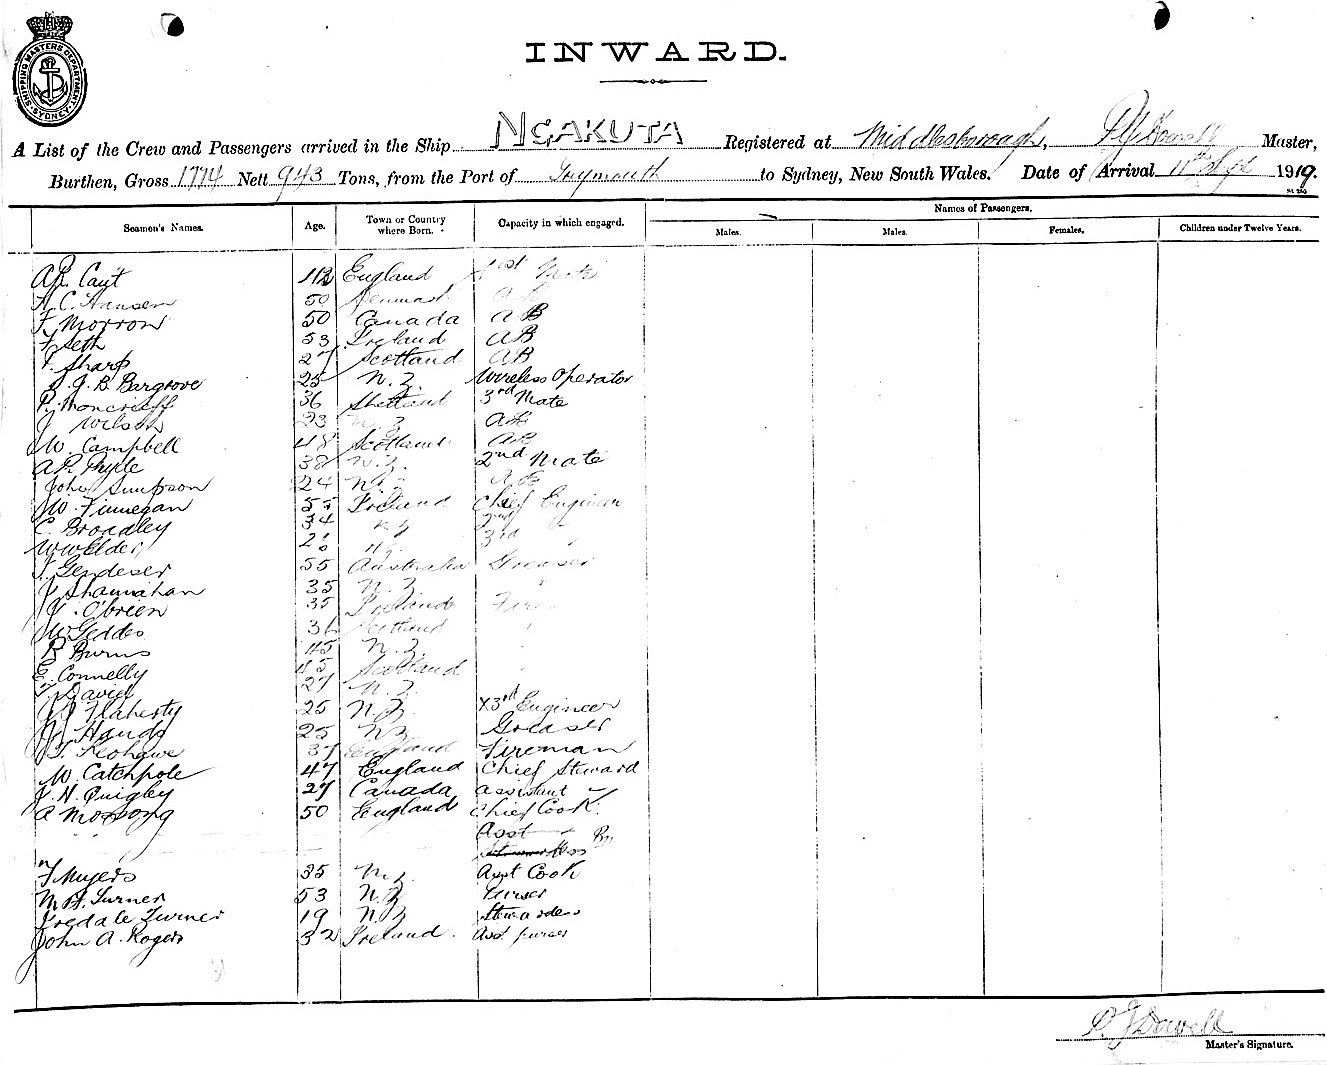 SHIPPING MASTERS DEPARTMENT SYDNEY
INWARD.
A List of the Crew and Passengers arrived in the Ship NGAKUTA Registered at Middlesborough, P J Dowell Master,
Burthen, Gross 1774 Nett 943 Tons, from the Port of Greymouth to Sydney, New South Wales. Date of Arrival 11th 1919.
Names of Passengers.
Seamen's Names. Age. Town or Country where Born. Capacity in which engaged. Males. Males. Females. Children under Twelve Years.
A.R. Caut 42 England 1st Mate
H. C. Hansen 50 Denmark AB
F. Morrow 50 Canada AB
F Seth 53 Ireland AB
Sharp 27 Scotland AB
S. G. B. Bargrove 25 N.Z. Wireless Operator
P. Moncrieff 36 Shetland 3rd Mate
J Wilson 23 N.Z AB
W. Campbell 48 Scotland AB
A R 38 N.Z. 2nd Mate
John Simpson 24 N.Z AB
W. Finnegan 55 Ireland Chief Engineer
C. Broadley 34 N Z 2nd "
W Welder 2 N.Z. 3rd "
Gendeser 55 Australia Greaser
J Shannahan 35 N.Z "
J. O'breen 35 Ireland Fire
W Geddes 36 Scotland "
R Burns 45 N.Z. "
E. Connelly 45 Scotland
T. David 27 N.Z.
J Flaherty 25 N.Z. X3rd Engineer
J Hands 25 NZ Greaser
T. Keohane 37 England Fireman
W. Catchpole 47 England Chief Steward
J. H. Quigley 27 Canada assistant "
A Mossong 50 England Chief Cook.
Asst
Stewardess
F Myers 35 N.Z. Asst Cook
M H. Turner 53 N.Z Purser
Iredale Turner 19 N.Z Stewardess
John A. Rogers 32 Ireland. Asst purser
P. J Dowell
Master's Signature.